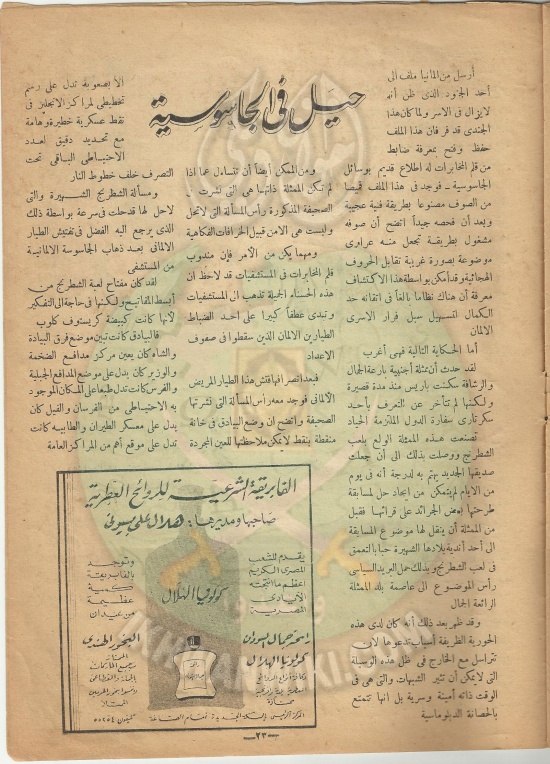 حيل فى الجاسوسية
أرسل من المانيا ملف الى
أحد الجنود الذى ظن أنه
لا يزال فى الاسر ولما كان هذا
الجندى قد فر فان هذا الملف
حفظ وفتح بمعرفة ضابط
من قلم المخابرات له اطلاع قديم بوسائل
الجاسوسية ـ فوجد فى هذا الملف قميصا
من الصوف مصنوعا بطريقة فنية عجيبة
وبعد أن فحصه جيداً اتضح أن صوفه
مشغول بطريقة تجعل منه عراوى
موضوعة بصورة غريبة تقابل الحروف
الهجائية وقد أمكن بواسطة هذا الاكتشاف
معرفة أن هناك نظاما بالغاً فى اتقانه حد
الكمال لتسهيل سبل فرار الاسرى
الالمان
أما الحكاية التالية فهى أغرب
لقد حدث أن ممثلة أجنبية بارعة الجمال
والرشاقة سكنت باريس منذ مدة قصيرة
ولكنها لم تتأخر عن التعرف بأحد
سكرتارى سفارة الدول الملتزمة الحياد
تصنعت هذه الممثلة الولع بلعب
الشطرنج ووصلت بذلك الى أن جعلت
صديقها الجديد يهتم به لدرجة أنه فى يوم
من الايام لم يتمكن من ايجاد حل لمسابقة
طرحتها بعض الجرائد على قرائها فقبل
من الممثلة أن ينقل لها موضوع المسابقة
الى أحد أندية بلادها الشهيرة حبا بالتعمق
فى لعب الشطرنج وبذلك حمل البريد السياسى
رأس الموضوع الى عاصمة بلد الممثلة
الرائعة الجمال
وقد ظهر بعد ذلك أنه كان لدى هذه
الحورية الظريفة أسباب تدعوها لان
تتراسل مع الخارج فى ظل هذه الوسيلة
التى لا يمكن أن تثير الشبهات والتى هى فى
الوقت ذاته أمينة وسرية بل انها تتمتع
بالحصانة الدبلوماسية
ومن الممكن أيضاً أن نتساءل عما اذا
لم تكن الممثلة ذاتها هى التى نشرت فى
الصحيفة المذكورة رأس المسألة التى لا تحل
وليست هى الا من قبيل الخرافات الفكاهية
ومهما يكن من الامر فإن مندوب
قلم المخابرات فى المستشفيات قد لاحظ ان
هذه الحسناء الجميلة تذهب الى المستشفيات
وتبدى عطفاً كبيرا على أحد الضباط
الطيارين الالمان الذين سقطوا فى صفوف
الاعداء
فبعد انصرافها فتش هذا الطيار المريض
الألمانى فوجد معه رأس المسألة التى نشرتها
الصحيفة واتضح ان وضع البيادق فى خانة
منقطة بنقط لا يمكن ملاحظتها للعين المجردة
الا بصعوبة تدل على رسم
تخطيطى لمراكز الانجليز فى
نقط عسكرية خطيرة وهامة
مع تحديد دقيق لعدد
الاحتياطى الباقى تحت
التصرف خلف خطوط النار
ومسألة الشطرنج الشهيرة والتى
لا حل لها قد حلت فى سرعة بواسطة ذلك
الذى يرجع اليه الفضل فى تفتيش الطيار
الالمانى بعد ذهاب الجاسوسة الالمانية
من المستشفى
لقد كان مفتاح لعبة الشطرنج من
أبسط المفاتيح ولكنها فى حاجة الى التفكير
لانها كانت كبيضة كريستوف كلوب
فالبيادق كانت تبين موضع فرق البيادة
والشاه كان يعين مركز مدافع الضخمة
والوزير كان يدل على موضع المدافع الجبلية
والفرس كانت تدل طبعا على المكان الموجود
به الاحتياطى من الفرسان والفيل كان
يدل على معسكر الطيران والطابيه كانت
تدل على موقع أهم من المراكز العامة
الفابريقة الشرقية للروائح العطرية
صاحبها ومديرها : هلال على بسيونى
يقدم للشعب
المصرى الكريم
أعظم ما أنتجته
الأيادى
المصرية
كولونيا الهلال
وتوجد
بالفابريقة
كمية
عظيمة
من عيدان
البخور الهندى
رائحة جمال السودان
كولونيا الهلال
تليفون ٥٥٢٥٤
ـ ٢٣ ـ
IKHWANWIKI.COM